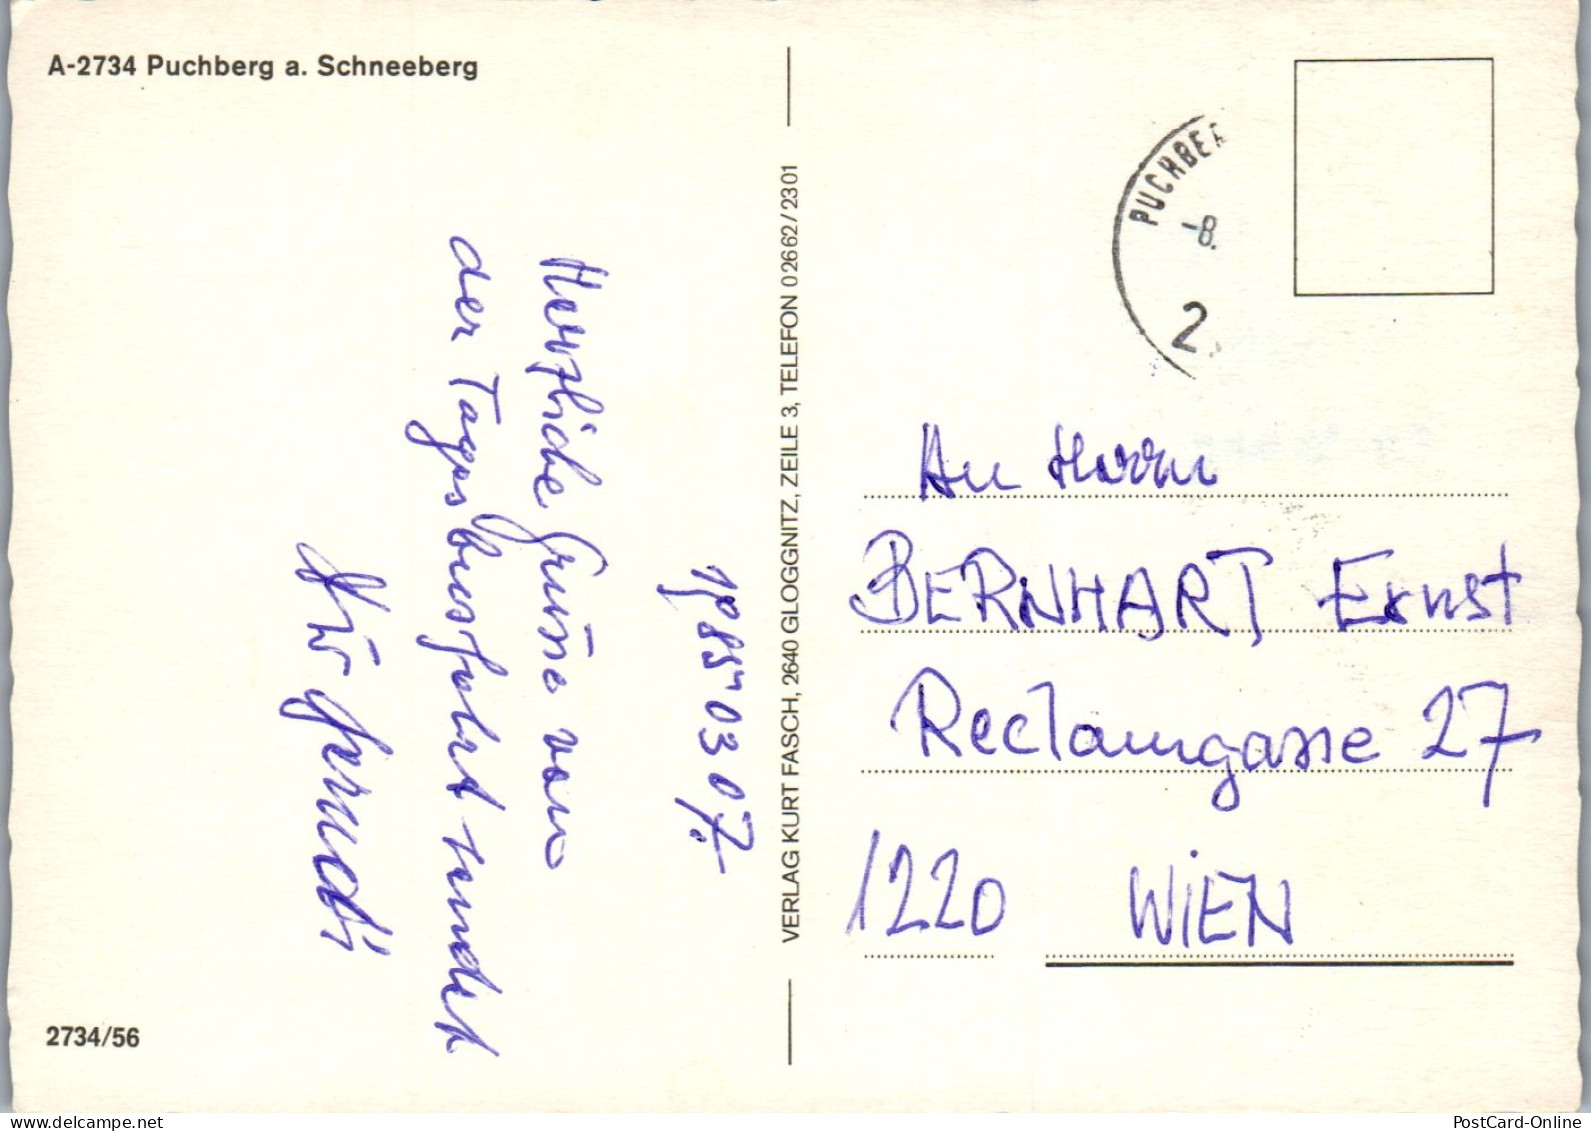 A-2734 Puchberg a. Schneeberg
1985 03 07.
Herzliche Grüße von
der Tagesbusfahrt sendet
2734/56
VERLAG KURT FASCH, 2640 GLOGGNITZ, ZEILE 3, TELEFON 02662/2301
PUCHBER
-8.
2
An Herrn
BERNHART Ernst
Reclamgasse 27
1220 WIEN
PostCard-Online
www.delcampe.net